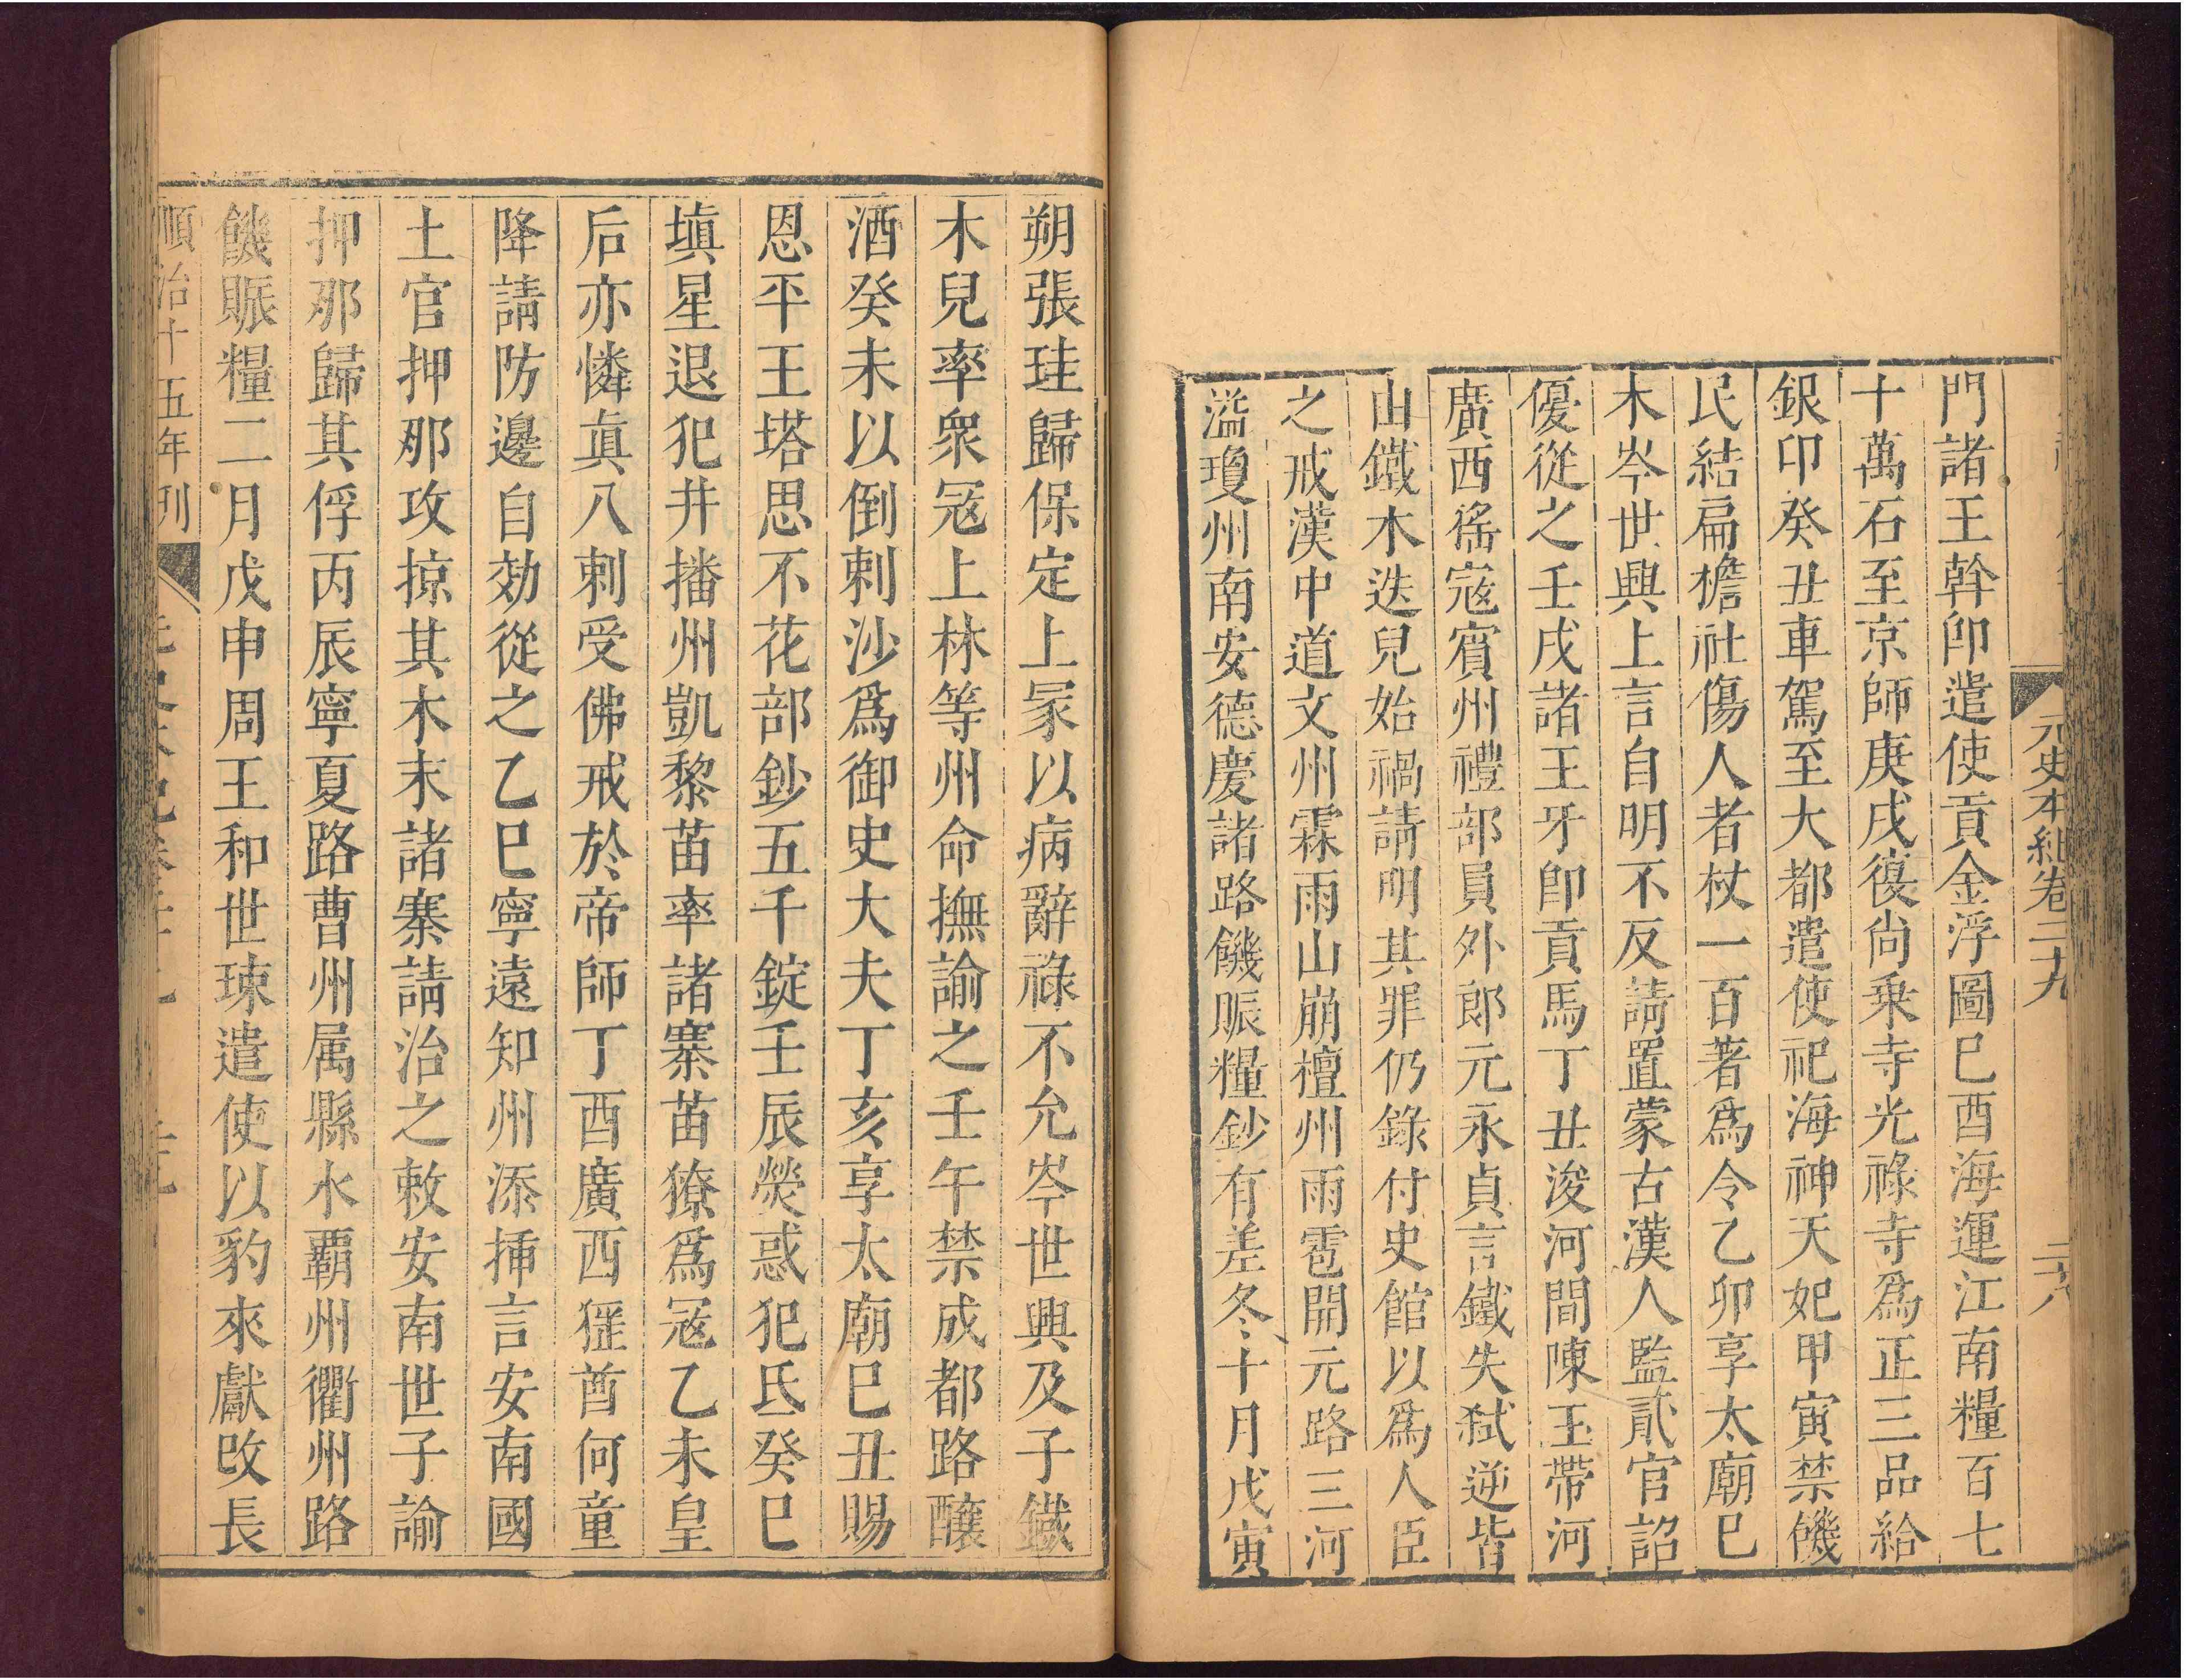 元史本紀卷二十九
二十八
門諸王幹卽遣使貢金浮圖巳酉海運江南糧百七
十萬石至京師庚戌復尙乗寺光祿寺爲正三品給
銀印癸丑車駕至大都遣使祀海神天妃甲寅禁饑
民結扁檐社傷人者杖一百著爲令乙卯享太廟巳
木岑世興上言自明不反請置蒙古漢人監貳官詔
優從之壬戌諸王牙卽貢馬丁丑浚河間陳玉帶河
廣西徭寇賓州禮部員外郎元永貞言鐵失弑逆皆
由鐵木迭兒始禍請明其罪仍錄付史館以爲人臣
之戒漢中道文州霖雨山崩檀州雨雹開元路三河
溢瓊州南安德慶諸路饑賑糧鈔有差冬十月戊寅
朔張珪歸保定上冢以病辭祿不允岑世興及子鐵
木兒率衆寇上林等州命撫諭之壬午禁成都路釀
酒癸未以倒剌沙爲御史大夫丁亥享太廟巳丑賜
恩平王塔思不花部鈔五千錠壬辰熒惑犯氐癸巳
塡星退犯井播州凱黎苗率諸寨苗獠爲寇乙未皇
后亦憐眞八剌受佛戒於帝師丁酉廣西猺酋何童
降請防邊自効從之乙巳寧遠知州添揷言安南國
土官押那攻掠其木末諸寨請治之敕安南世子諭
押那歸其俘丙辰寧夏路曹州属縣水覇州衢州路
饑賑糧二月戊申周王和世㻋遣使以豹來獻改長
順治十五年刋